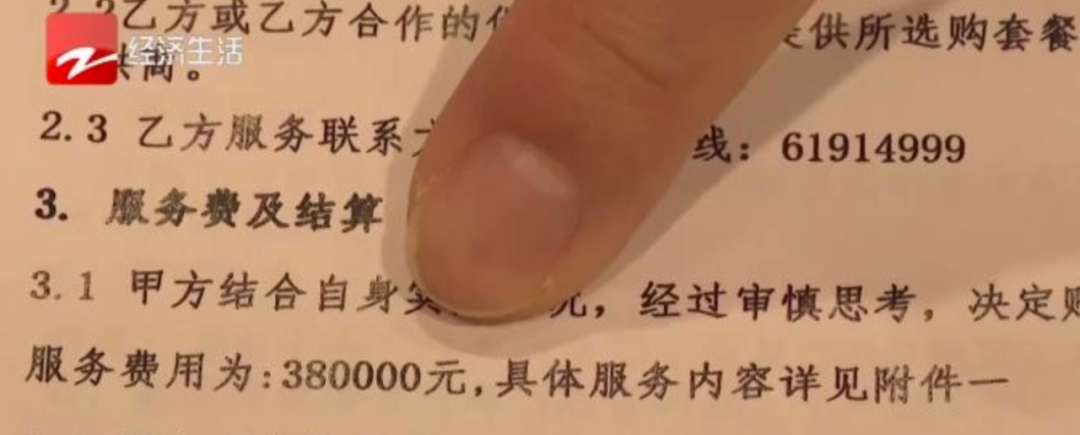 经济生活
2.2乙方或乙方合作的 供所选购套餐
供商。
2.3 乙方服务联系 线：61914999
3. 服务费及结算
3.1 甲方结合自身 况，经过审慎思考，决定
服务费用为:380000元,具体服务内容详见附件一